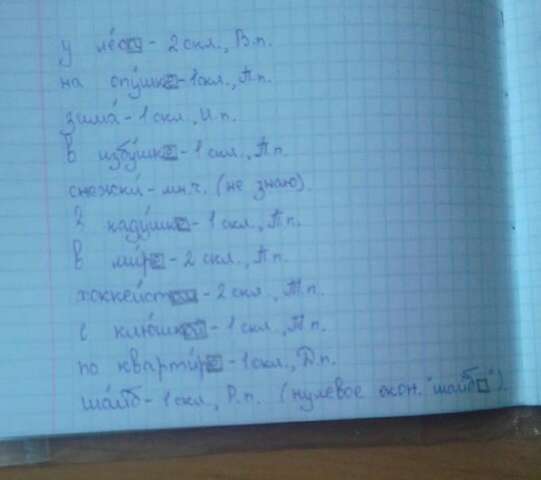 у леса - 2 скл., В.п.
на опушке - 1 скл., П.п.
зима́ - 1 скл., И.п.
в избу́шке - 1 скл., П.п.
снежки́ - мн.ч. (не знаю).
в кадушке - 1 скл., П.п.
в ми́ре - 2 скл., П.п.
хокке́йст - 2 скл., Т.п.
с клю́шкой - 1 скл., Т.п.
по кварти́ре - 1 скл., Д.п.
ша́йб - 1 скл., Р.п. (нулевое окон. "шайб").